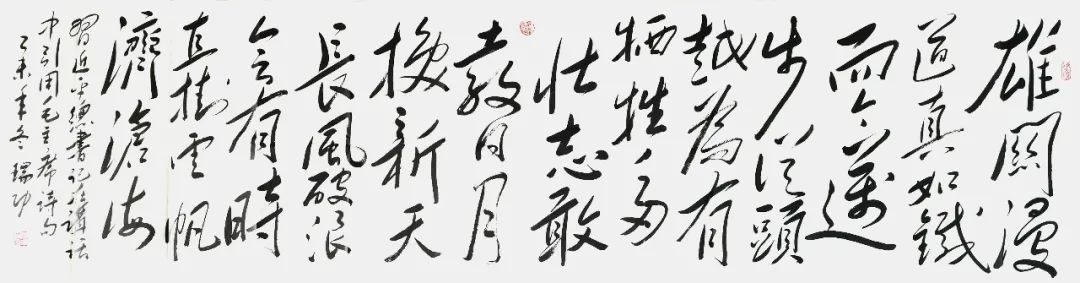 雄關漫
道真如鐵
而今邁
步從頭
越為有
牺牲多
壯志敢
教日月
換新天
長風破浪
會有時
直掛雲帆
濟滄海
習近平總書記在講話
中引用毛主席詩句
乙未年冬瑞功